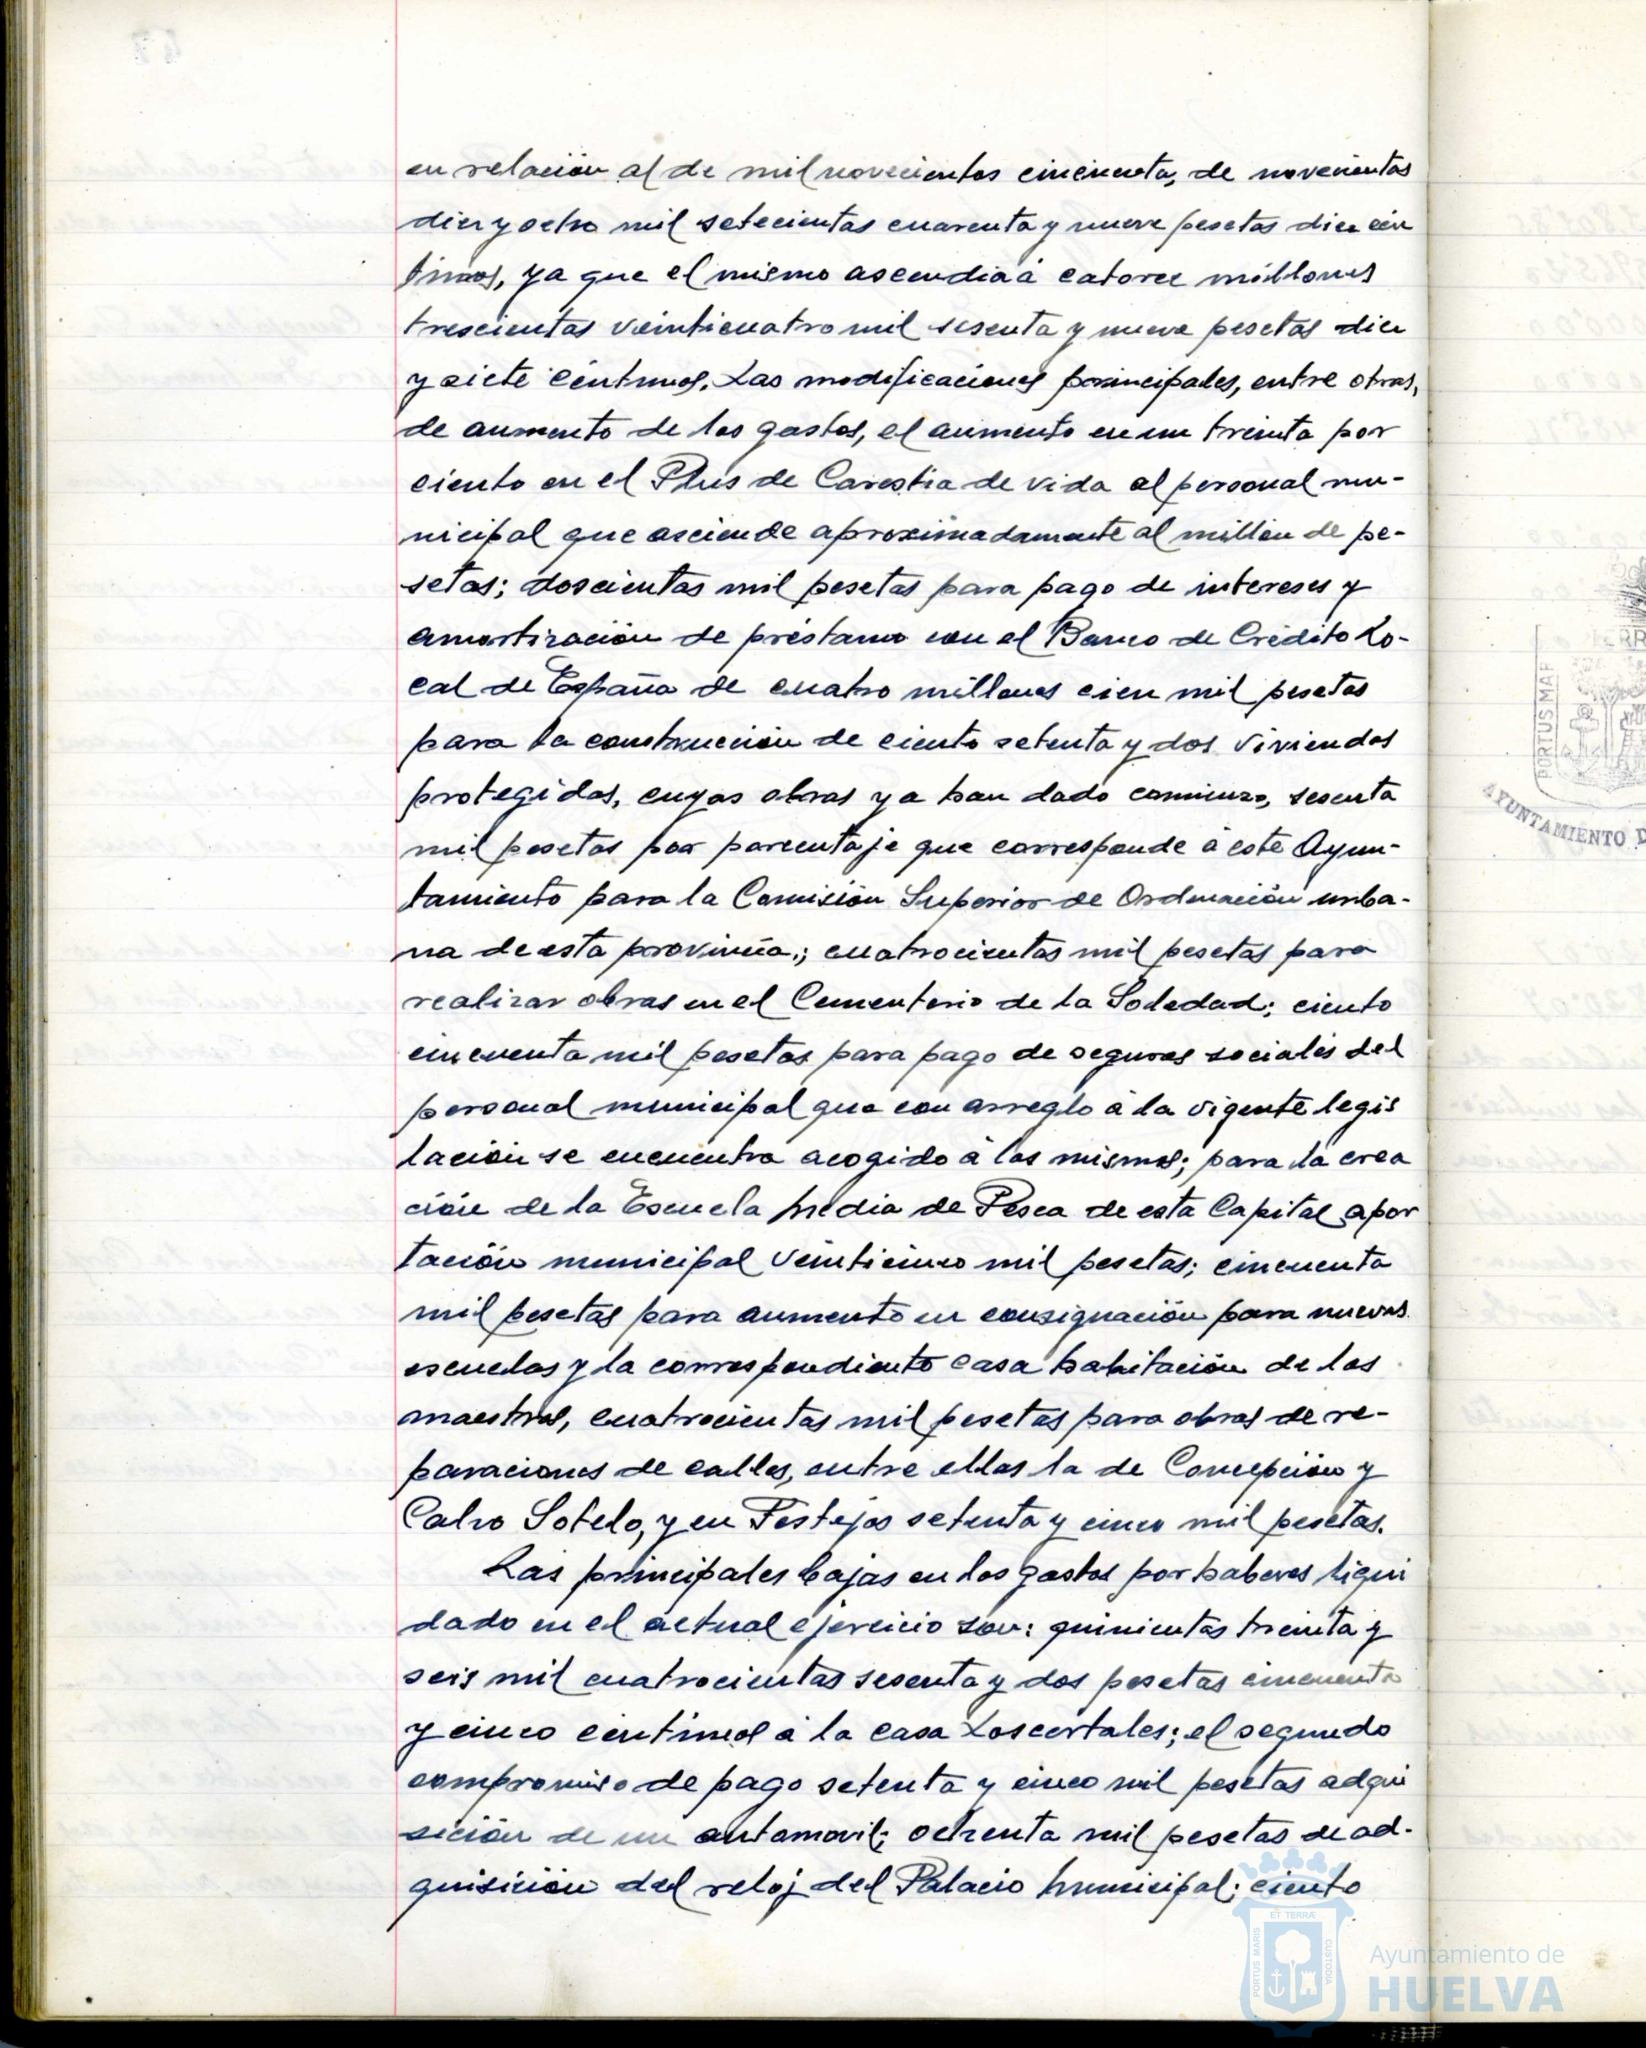 en relación al de mil novecientos cincuenta, de novecientas
diez y ocho mil setecientas cuarenta y nueve pesetas diez cén
timos, ya que el mismo ascendia á catorce millones
trescientas veinticuatro mil sesenta y nueve pesetas diez
y siete céntimos. Las modificaciones principales, entre otras,
de aumento de los gastos, el aumento en un treinta por
ciento en el Plus de Carestia de vida al personal mu-
nicipal que asciende aproximadamente al millón de pe-
setas; doscientas mil pesetas para pago de intereses y
amortización de préstamo con el Banco de Crédito Lo-
cal de España de cuatro millones cien mil pesetas
para la construcción de ciento setenta y dos viviendas
protegidas, cuyas obras ya han dado comienzo, sesenta
mil pesetas por porcentaje que corresponde á este Ayun-
tamiento para la Comisión Superior de Ordenación urba-
na de esta provincia,; cuatrocientas mil pesetas para
realizar obras en el Cementerio de la Soledad; ciento
cincuenta mil pesetas para pago de seguros sociales del
personal municipal que con arreglo á la vigente legis
lación se encuentra acogido á los mismos; para la crea
ción de la Escuela Media de Pesca de esta Capital apor
tación municipal veinticinco mil pesetas; cincuenta
mil pesetas para aumento en consignación para nuevas
escuelas y la correspondiente casa habitación de los
maestros, cuatrocientas mil pesetas para obras de re-
paraciones de calles, entre ellas la de Concepción y
Calvo Sotelo, y en Festejos setenta y cinco mil pesetas.
Las principales bajas en los gastos por haberes liqui
dado en el actual ejercicio son: quinientas treinta y
seis mil cuatrocientas sesenta y dos pesetas cincuenta
y cinco céntimos á la casa Loscertales; el segundo
compromiso de pago setenta y cinco mil pesetas adqui
sición de un automovil; ochenta mil pesetas de ad-
quisición del reloj del Palacio Municipal; ciento
PORTUS MAR
TERR
AYUNTAMIENTO D
PORTUS MARIS
ET TERRÆ
CUSTODIA
Ayuntamiento de
HUELVA